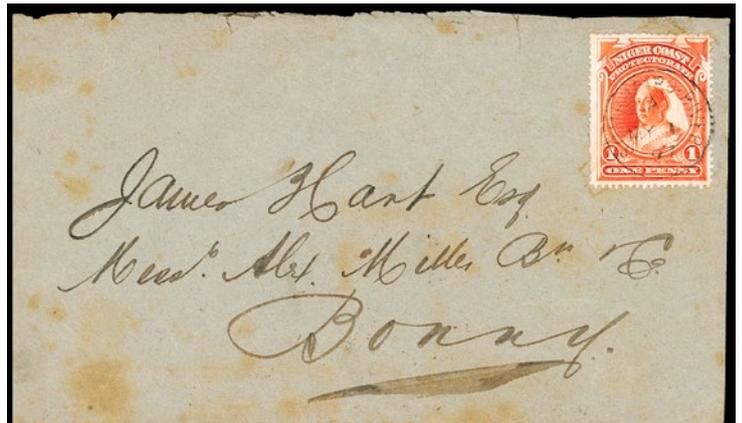 NIGER COAST
PROTECTORATE
1 1
ONE PENNY
James Hart Esq
Messrs. Alex. Miller Br. & Co.
Bonny.